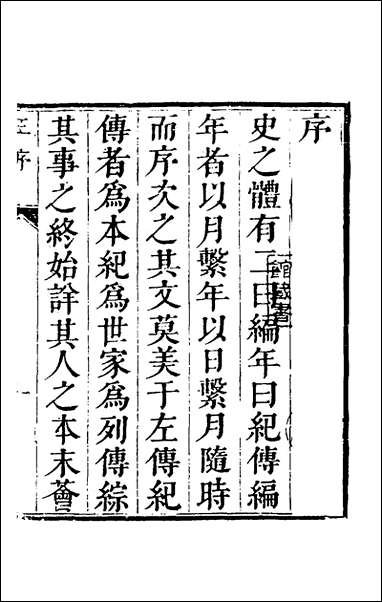 序
史之體有二曰編年曰紀傳編
年者以月繫年以日繫月隨時
而序次之其文莫美于左傳紀
傳者爲本紀爲世家爲列傳綜
其事之終始詳其人之本末薈
序
一